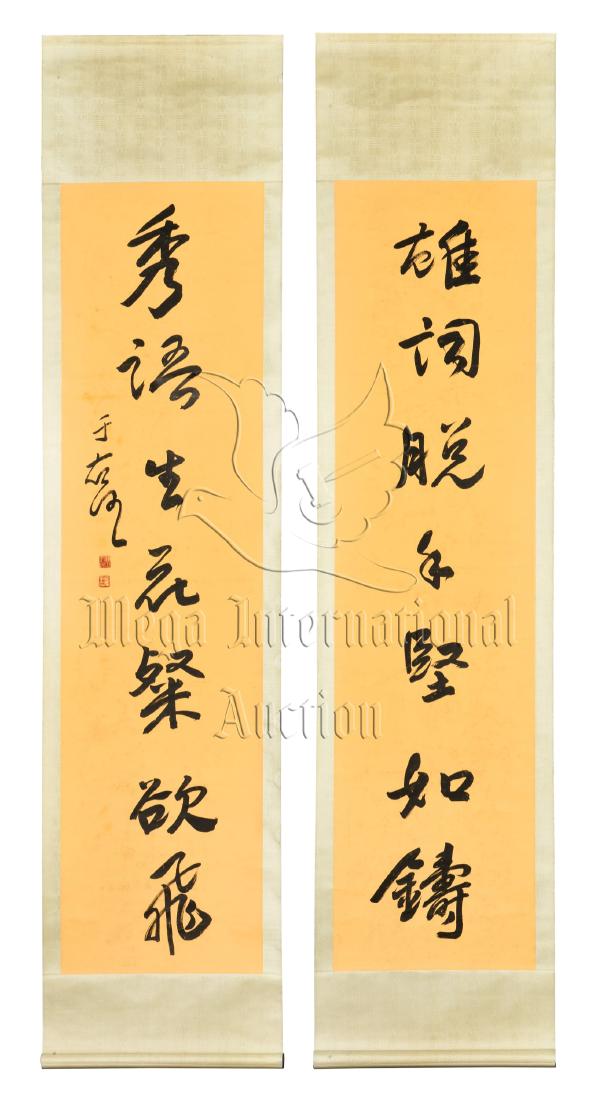 雄词脱手堅如鑄
秀語生花粲欲飛
于右任
Mega International
Auction